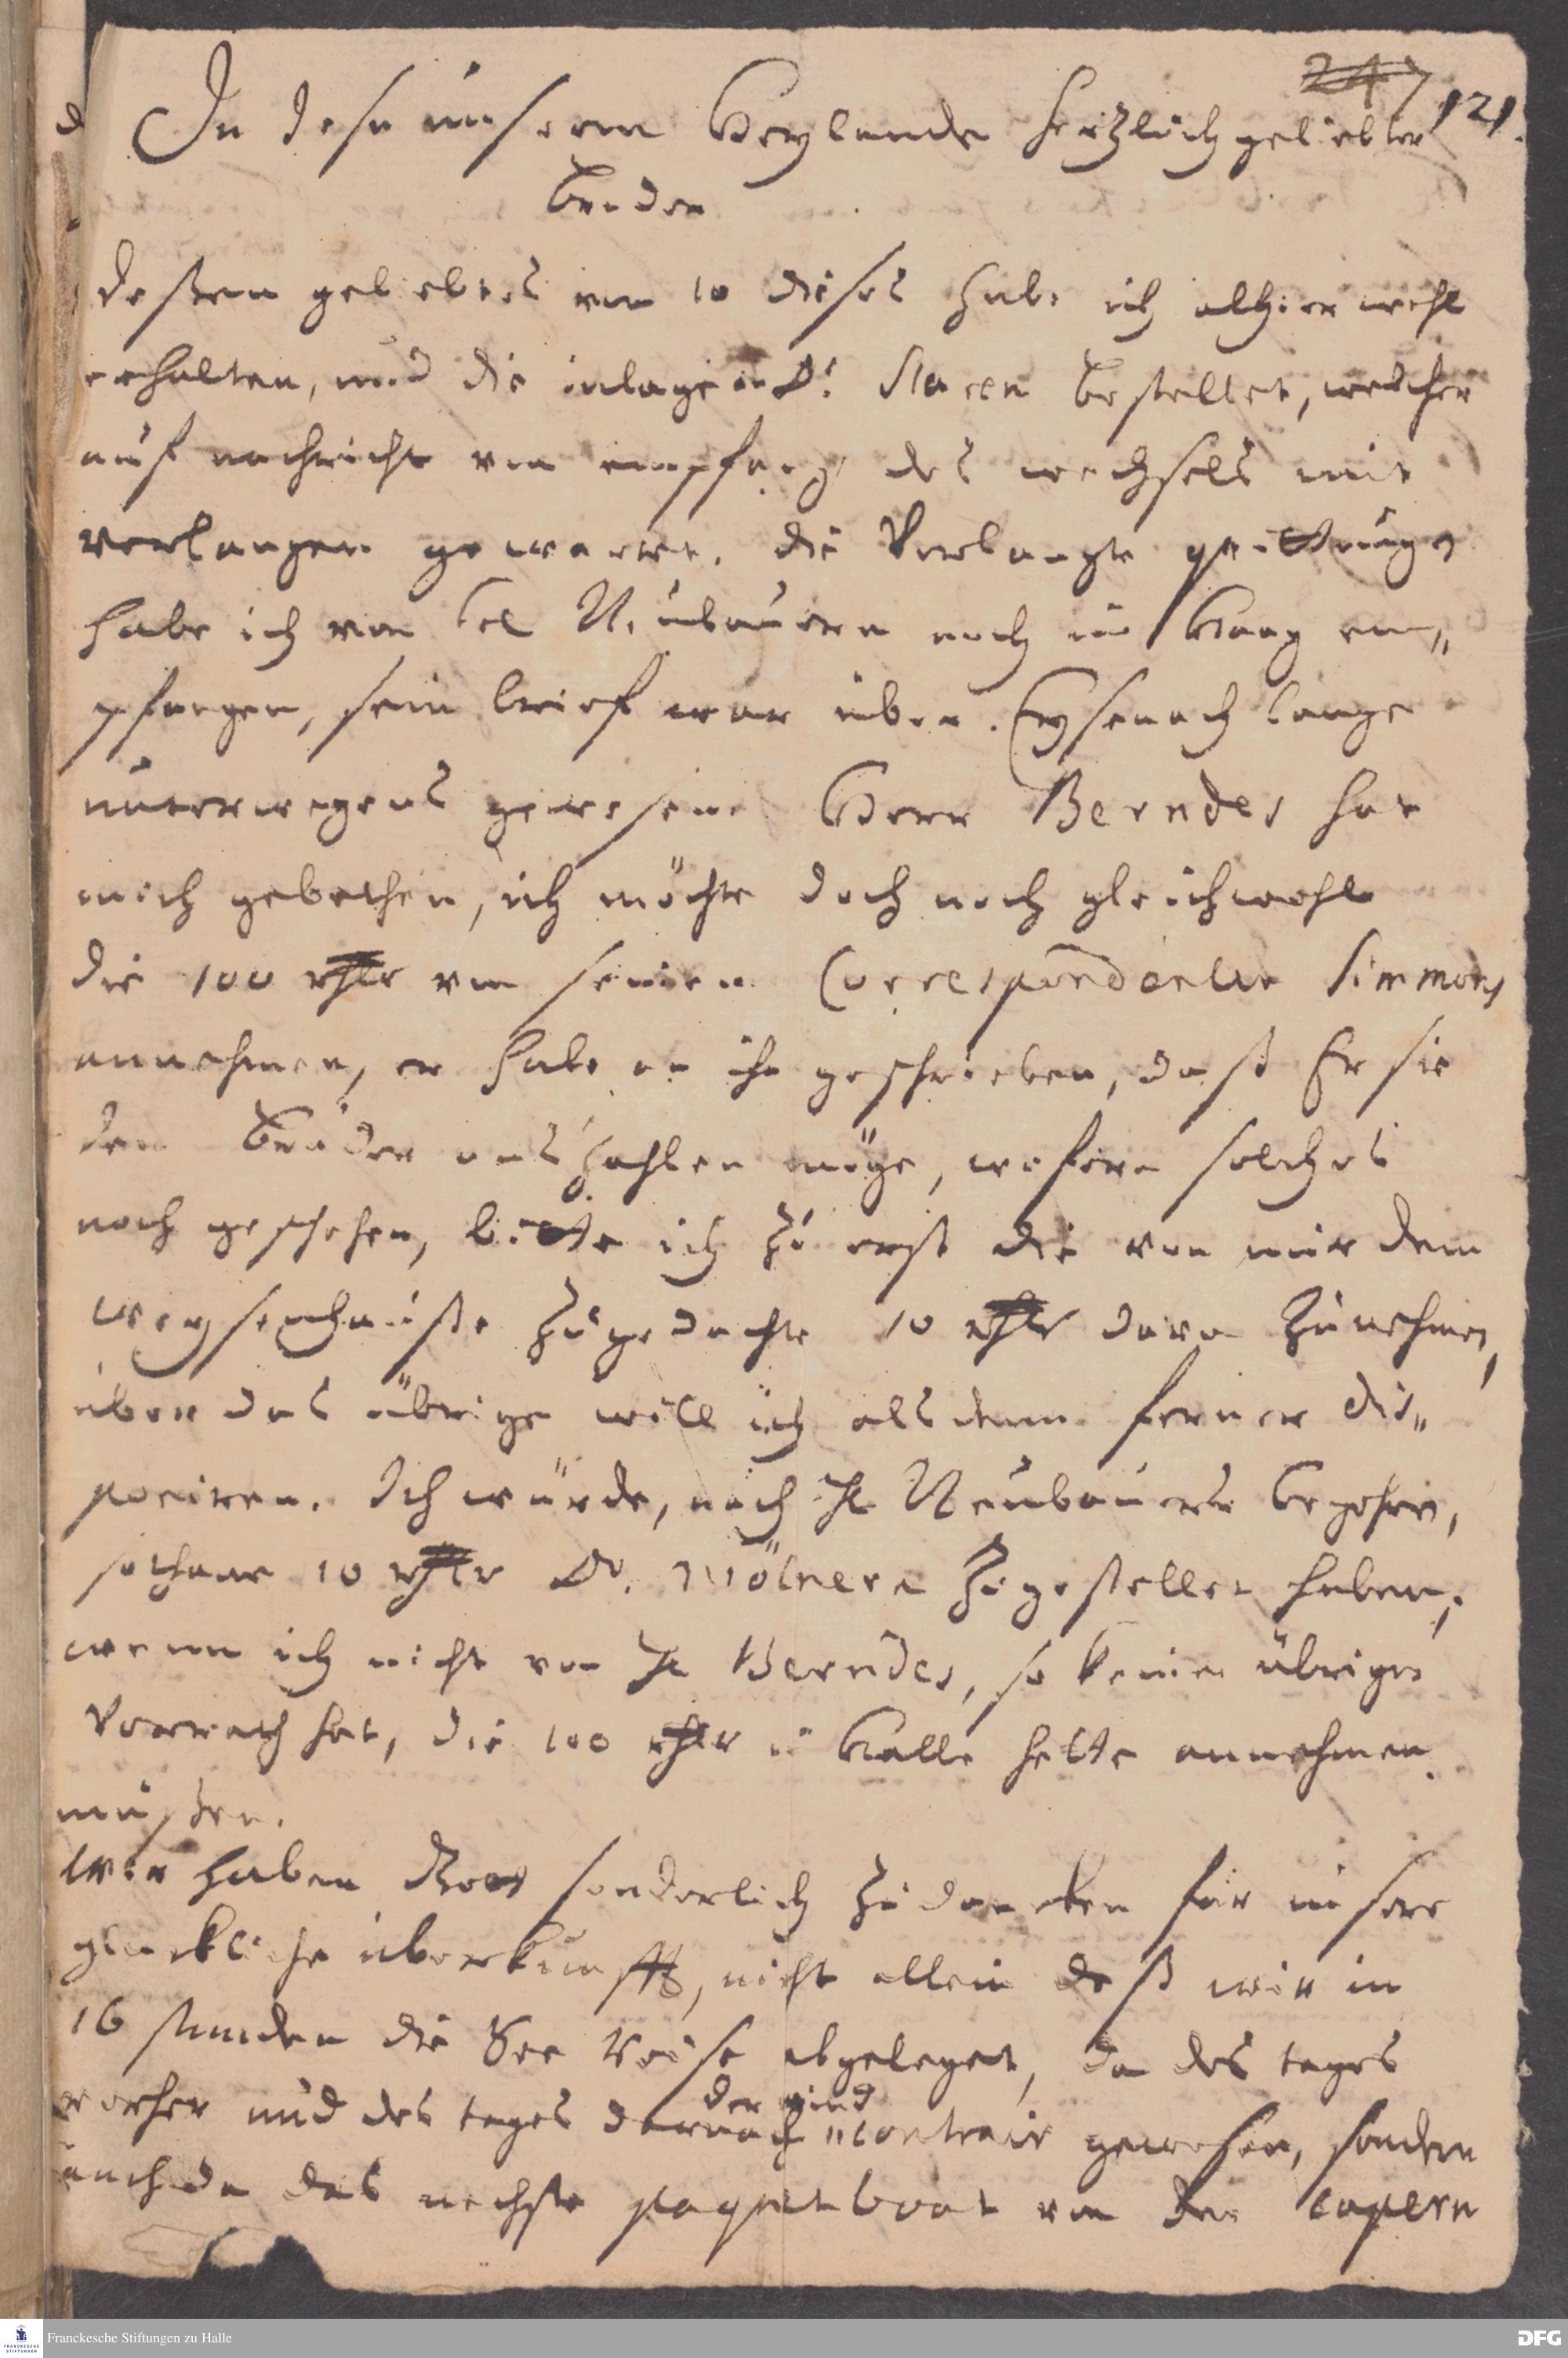 247 121.
In Jesu unserm Heylande hertzlich geliebter
Bruder
Deßen geliebtes vom 10 dieses habe ich alhier wohl
erhalten, und die inlage an D. Slaren bestellet, welcher
auf nachricht vom empfang des wechsels mit
verlangen gewartet. die Verlangte quittung
habe ich von H Neubauern noch im Haag em„
pfangen, sein brief war über Eysenach lange
unterwegens gewesen. Herr Berndes hat
mich gebethen, ich möchte doch noch gleichwohl
die 100 rthlr von seinen Correspondenten Simmons
annehmen, er habe an ihn geschrieben, daß Er sie
dem Bruder auszahlen möge, wofern solches
noch geschehen, bitte ich zu erst die von mir dem
weysenhause zugedachte 10 rthlr davon zunehmen,
über das übrige will ich alsdenn ferner dis„
poniren. Ich würde, nach H Neubauers begehren,
sothane 10 rthlr D. Mölnern zugestellet haben,
wenn ich nicht von H Berndes, so keinen übrigen
Vorrath hat, die 100 rthlr in Halle hette annehmen
müßen.
Wir haben Gott sonderlich zu dancken für unsere
glückliche überkunfft, nicht allein daß wir in
16 stunden die See Reise abgeleget, da des tages
vorher und des tages darnach der wind contrair gewesen, sondern
auch da das nechste paquetboot von den capern
Franckesche Stiftungen zu Halle
FRANCKESCHE STIFTUNGEN
DFG